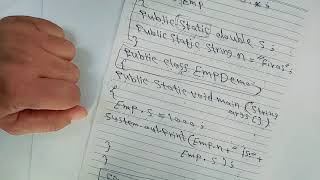 Emp
{
Public Static double s;
Public Static String n = "Firas";
}
Public class EmpDemo{
Public Static void main (String
args []).
{
Emp.s = 1000;
System.out.Print(Emp.n + " is" +
Emp.s);
}
}